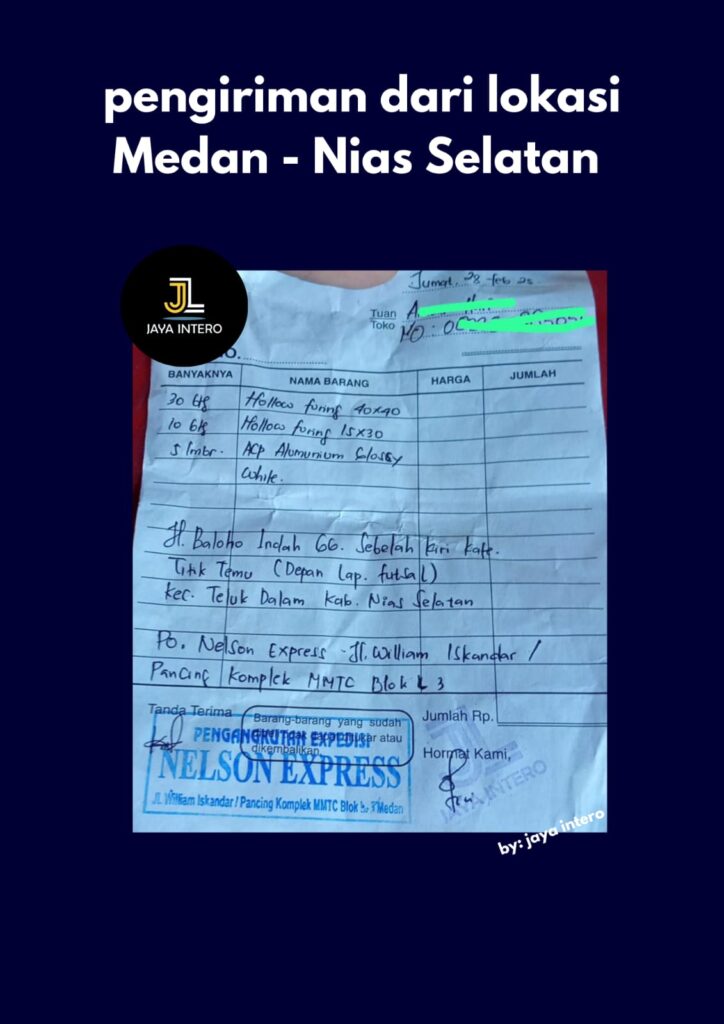 pengiriman dari lokasi
Medan - Nias Selatan
JL
JAYA INTERO
Jumat, 28 feb 25
Tuan
Toko
NO.
BANYAKNYA NAMA BARANG HARGA JUMLAH
30 btg Hollow furing 40x40
10 btg Hollow furing 15x30
5 lmbr. ACP Alumunium Glossy
White.
Jl. Baloho Indah 66. Sebelah kiri kafe.
Titik Temu (Depan Lap. futsal)
Kec. Teluk Dalam Kab. Nias Selatan
Po. Nelson Express - Jl. William Iskandar /
Pancing Komplek MMTC Blok L 3
Tanda Terima
Barang-barang yang sudah
dibeli tidak dapat ditukar atau
dikembalikan.
Jumlah Rp.
Hormat Kami,
PENGANGKUTAN EXPEDISI
NELSON EXPRESS
JL. William Iskandar / Pancing Komplek MMTC Blok Medan
JL
JAYA INTERO
by: jaya intero